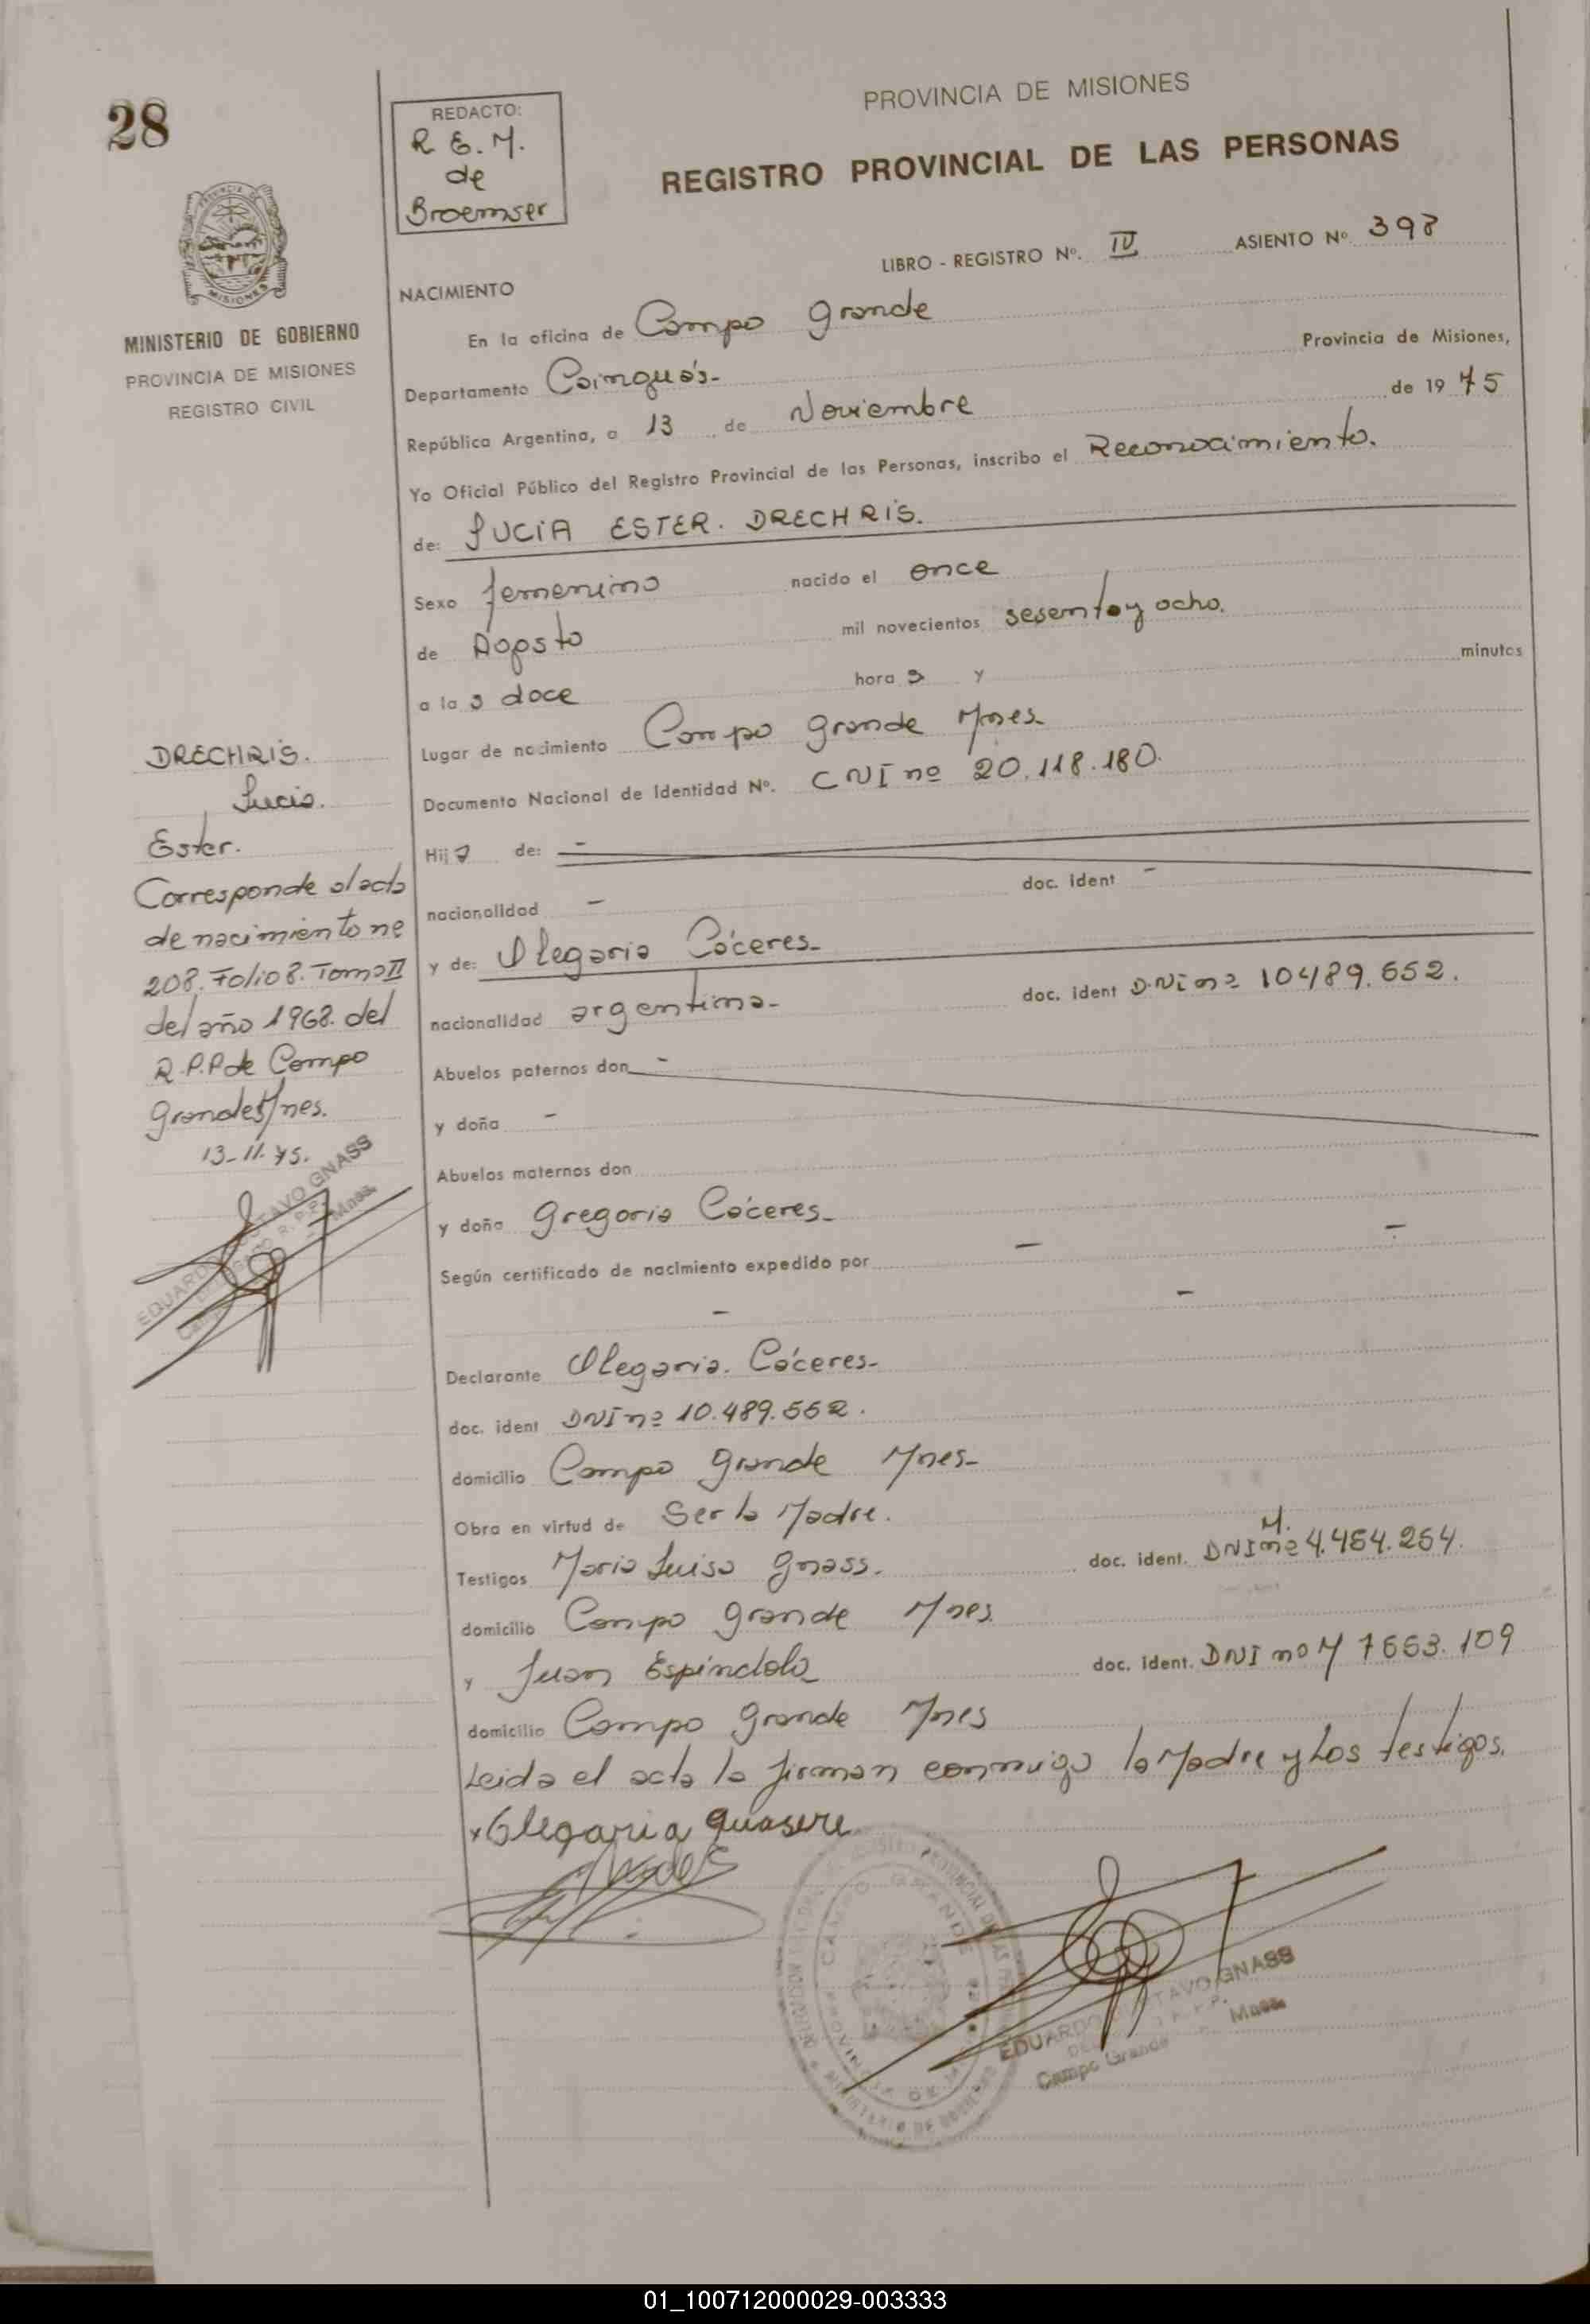 28
REDACTO:
R. E. M.
de
Broemser
PROVINCIA DE MISIONES
REGISTRO PROVINCIAL DE LAS PERSONAS
LIBRO - REGISTRO Nº. IV ASIENTO Nº 398
MINISTERIO DE GOBIERNO
PROVINCIA DE MISIONES
REGISTRO CIVIL
NACIMIENTO
En la oficina de Campo Grande
Provincia de Misiones,
Departamento Cainguás-
República Argentina, a 13 de Noviembre de 19 75
Yo Oficial Público del Registro Provincial de las Personas, inscribo el Reconocimiento.
de: LUCIA ESTER. DRECHRIS.
Sexo femenino nacido el once
de Agosto mil novecientos sesenta y ocho.
a la s doce hora s y minutos
Lugar de nacimiento Campo Grande Mnes-
Documento Nacional de Identidad Nº. CNI nº 20.118.180.
Hij a de: -
nacionalidad - doc. ident -
y de: Olegaria Cáceres-
nacionalidad argentina- doc. ident D.Ni nº 10489.552.
Abuelos paternos don -
y doña -
Abuelos maternos don
y doña Gregoria Cáceres-
Según certificado de nacimiento expedido por - -
- -
Declarante Olegaria. Cáceres-
doc. ident DNI nº 10.489.552.
domicilio Campo Grande Mnes-
Obra en virtud de Ser la Madre.
Testigos Maria Luisa Gnass. doc. ident. DNI nº M. 4.454.254.
domicilio Campo Grande Mnes.
y Juan Espindola doc. ident. DNI nº M 7553.109
domicilio Campo Grande Mnes
Leida el acta la firman conmigo la Madre y Los testigos.
x Olegaria quasere
DRECHRIS.
Lucia.
Ester.
Corresponde al acta
de nacimiento nº
208. Folio 8. Tomo II
del año 1968. del
R.P.P de Campo
Grande Mnes.
13-11-75.
EDUARDO GUSTAVO GNASS
R. P. P.
Mnes.
EDUARDO GUSTAVO GNASS
R. P. P.
Campo Grande Mnes.
CAMPO GRANDE
MINISTERIO DE GOBIERNO
01_100712000029-003333